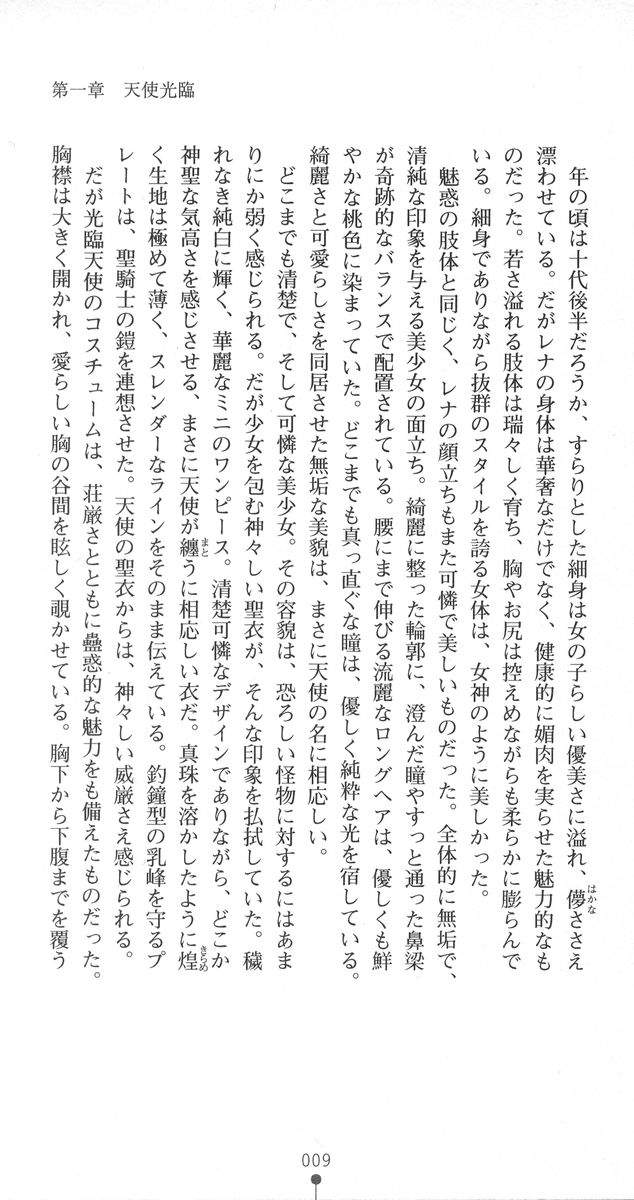 年の頃は十代後半だろうか、すらりとした細身は女の子らしい優美さに溢れ、儚ささえ
漂わせている。だがレナの身体は華奢なだけでなく、健康的に媚肉を実らせた魅力的なも
のだった。若さ溢れる肢体は瑞々しく育ち、胸やお尻は控えめながらも柔らかに膨らんで
いる。細身でありながら抜群のスタイルを誇る女体は、女神のように美しかった。
魅惑の肢体と同じく、レナの顔立ちもまた可憐で美しいものだった。全体的に無垢で、
清純な印象を与える美少女の面立ち。綺麗に整った輪郭に、澄んだ瞳やすっと通った鼻梁
が奇跡的なバランスで配置されている。腰にまで伸びる流麗なロングヘアは、優しくも鮮
やかな桃色に染まっていた。どこまでも真っ直ぐな瞳は、優しく純粋な光を宿している。
綺麗さと可愛らしさを同居させた無垢な美貌は、まさに天使の名に相応しい。
どこまでも清楚で、そして可憐な美少女。その容貌は、恐ろしい怪物に対するにはあま
りにか弱く感じられる。だが少女を包む神々しい聖衣が、そんな印象を払拭していた。穢
れなき純白に輝く、華麗なミニのワンピース。清楚可憐なデザインでありながら、どこか
神聖な気高さを感じさせる、まさに天使が纏うに相応しい衣だ。真珠を溶かしたように煌
く生地は極めて薄く、スレンダーなラインをそのまま伝えている。釣鐘型の乳峰を守るプ
レートは、聖騎士の鎧を連想させた。天使の聖衣からは、神々しい威厳さえ感じられる。
だが光臨天使のコスチュームは、荘厳さとともに蠱惑的な魅力をも備えたものだった。
胸襟は大きく開かれ、愛らしい胸の谷間を眩しく覗かせている。胸下から下腹までを覆う
はかな
まと
きらめ
第一章　天使光臨
009